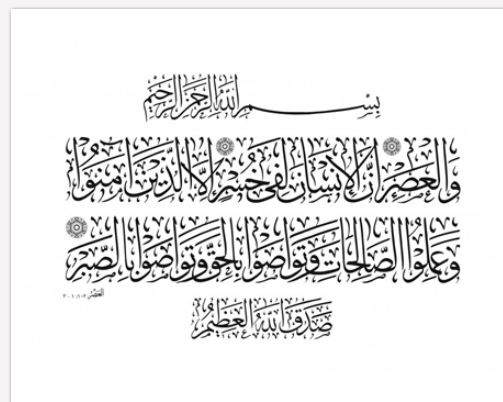 بِسْمِ اللَّهِ الرَّحْمَٰنِ الرَّحِيمِ
وَالْعَصْرِ إِنَّ الْإِنسَانَ لَفِي خُسْرٍ إِلَّا الَّذِينَ آمَنُوا
وَعَمِلُوا الصَّالِحَاتِ وَتَوَاصَوْا بِالْحَقِّ وَتَوَاصَوْا بِالصَّبْرِ
العَصْر
صَدَقَ اللَّهُ الْعَظِيمُ